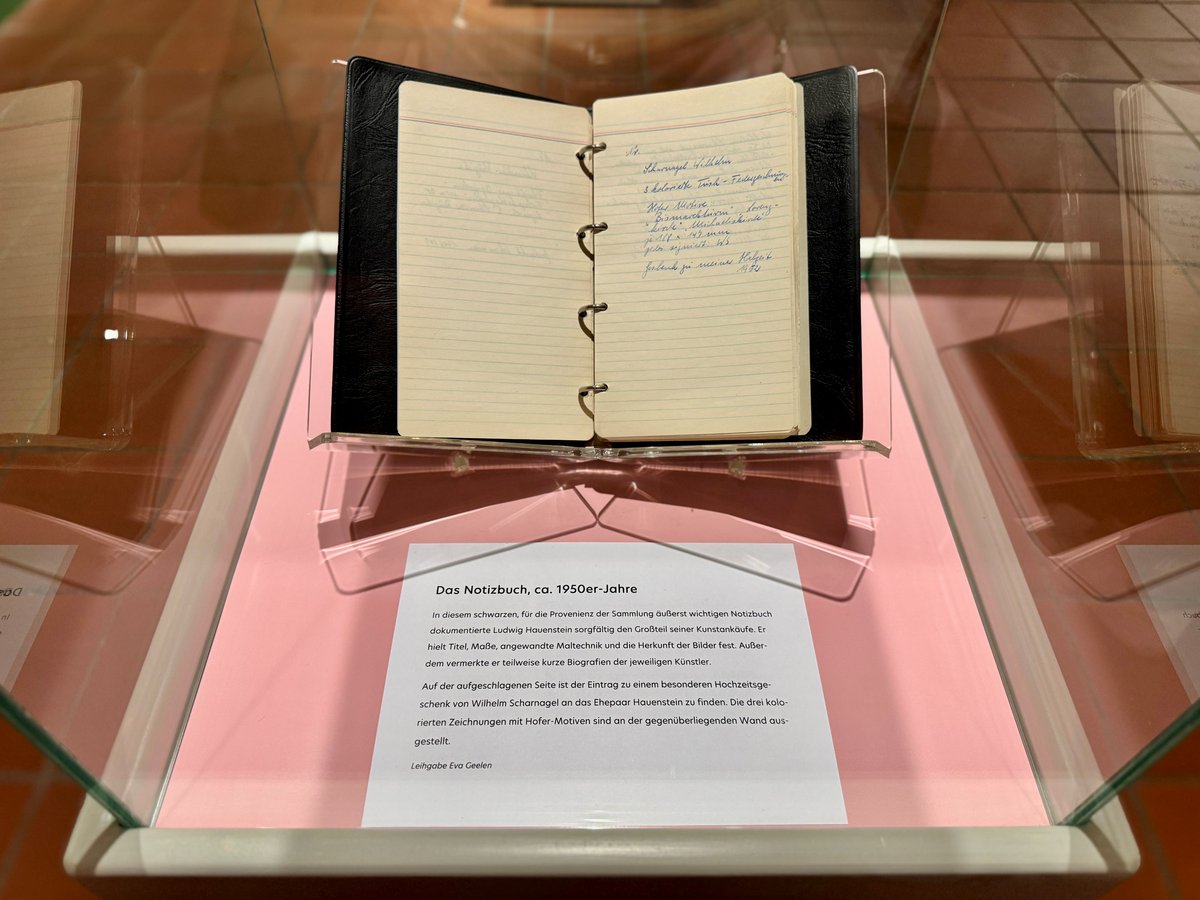 Nr.
Scharnagel Wilhelm
3 kolorierte Tusch-Federzeichnungen
Hofer Motive:
"Bismarckturm", Lorenz-
kirche", Michaeliskirche"
je 168 x 149 mm
signiert: WS
Geschenk zu meiner Hochzeit
Das Notizbuch, ca. 1950er-Jahre
In diesem schwarzen, für die Provenienz der Sammlung äußerst wichtigen Notizbuch
dokumentierte Ludwig Hauenstein sorgfältig den Großteil seiner Kunstankäufe. Er
hielt Titel, Maße, angewandte Maltechnik und die Herkunft der Bilder fest. Außer-
dem vermerkte er teilweise kurze Biografien der jeweiligen Künstler.
Auf der aufgeschlagenen Seite ist der Eintrag zu einem besonderen Hochzeitsge-
schenk von Wilhelm Scharnagel an das Ehepaar Hauenstein zu finden. Die drei kolo-
rierten Zeichnungen mit Hofer-Motiven sind an der gegenüberliegenden Wand aus-
gestellt.
Leihgabe Eva Geelen